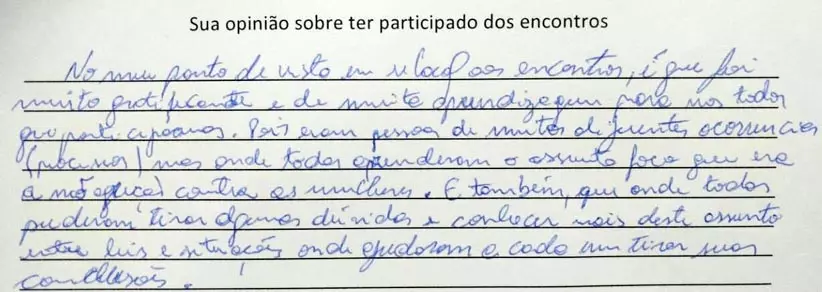 Sua opinião sobre ter participado dos encontros
No meu ponto de vista em relaçaõ aos encontros, é que foi
muito gratificante e de muita aprendizagem para nos todos
que participoamos. Pois eram pessoas de muitos diferentes ocorrencias
(processos) mas onde todos aprenderam o assunto foco que era
a não contra as mulheres. E também, que onde todos
puderam tirar algumas dúvidas e conhecer mais deste assunto
entre leis e situações onde ajudaram a cada um tirar suas
conclusões.